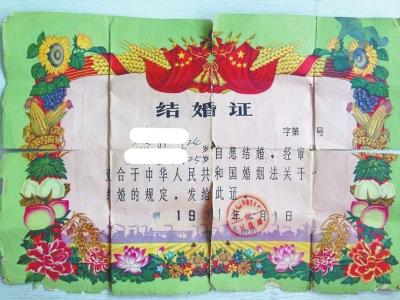 结婚证
字第 号
24
岁自愿结婚，经审
25岁
合于中华人民共和国婚姻法关于
结婚的规定，发给此证
19 1年 月 日